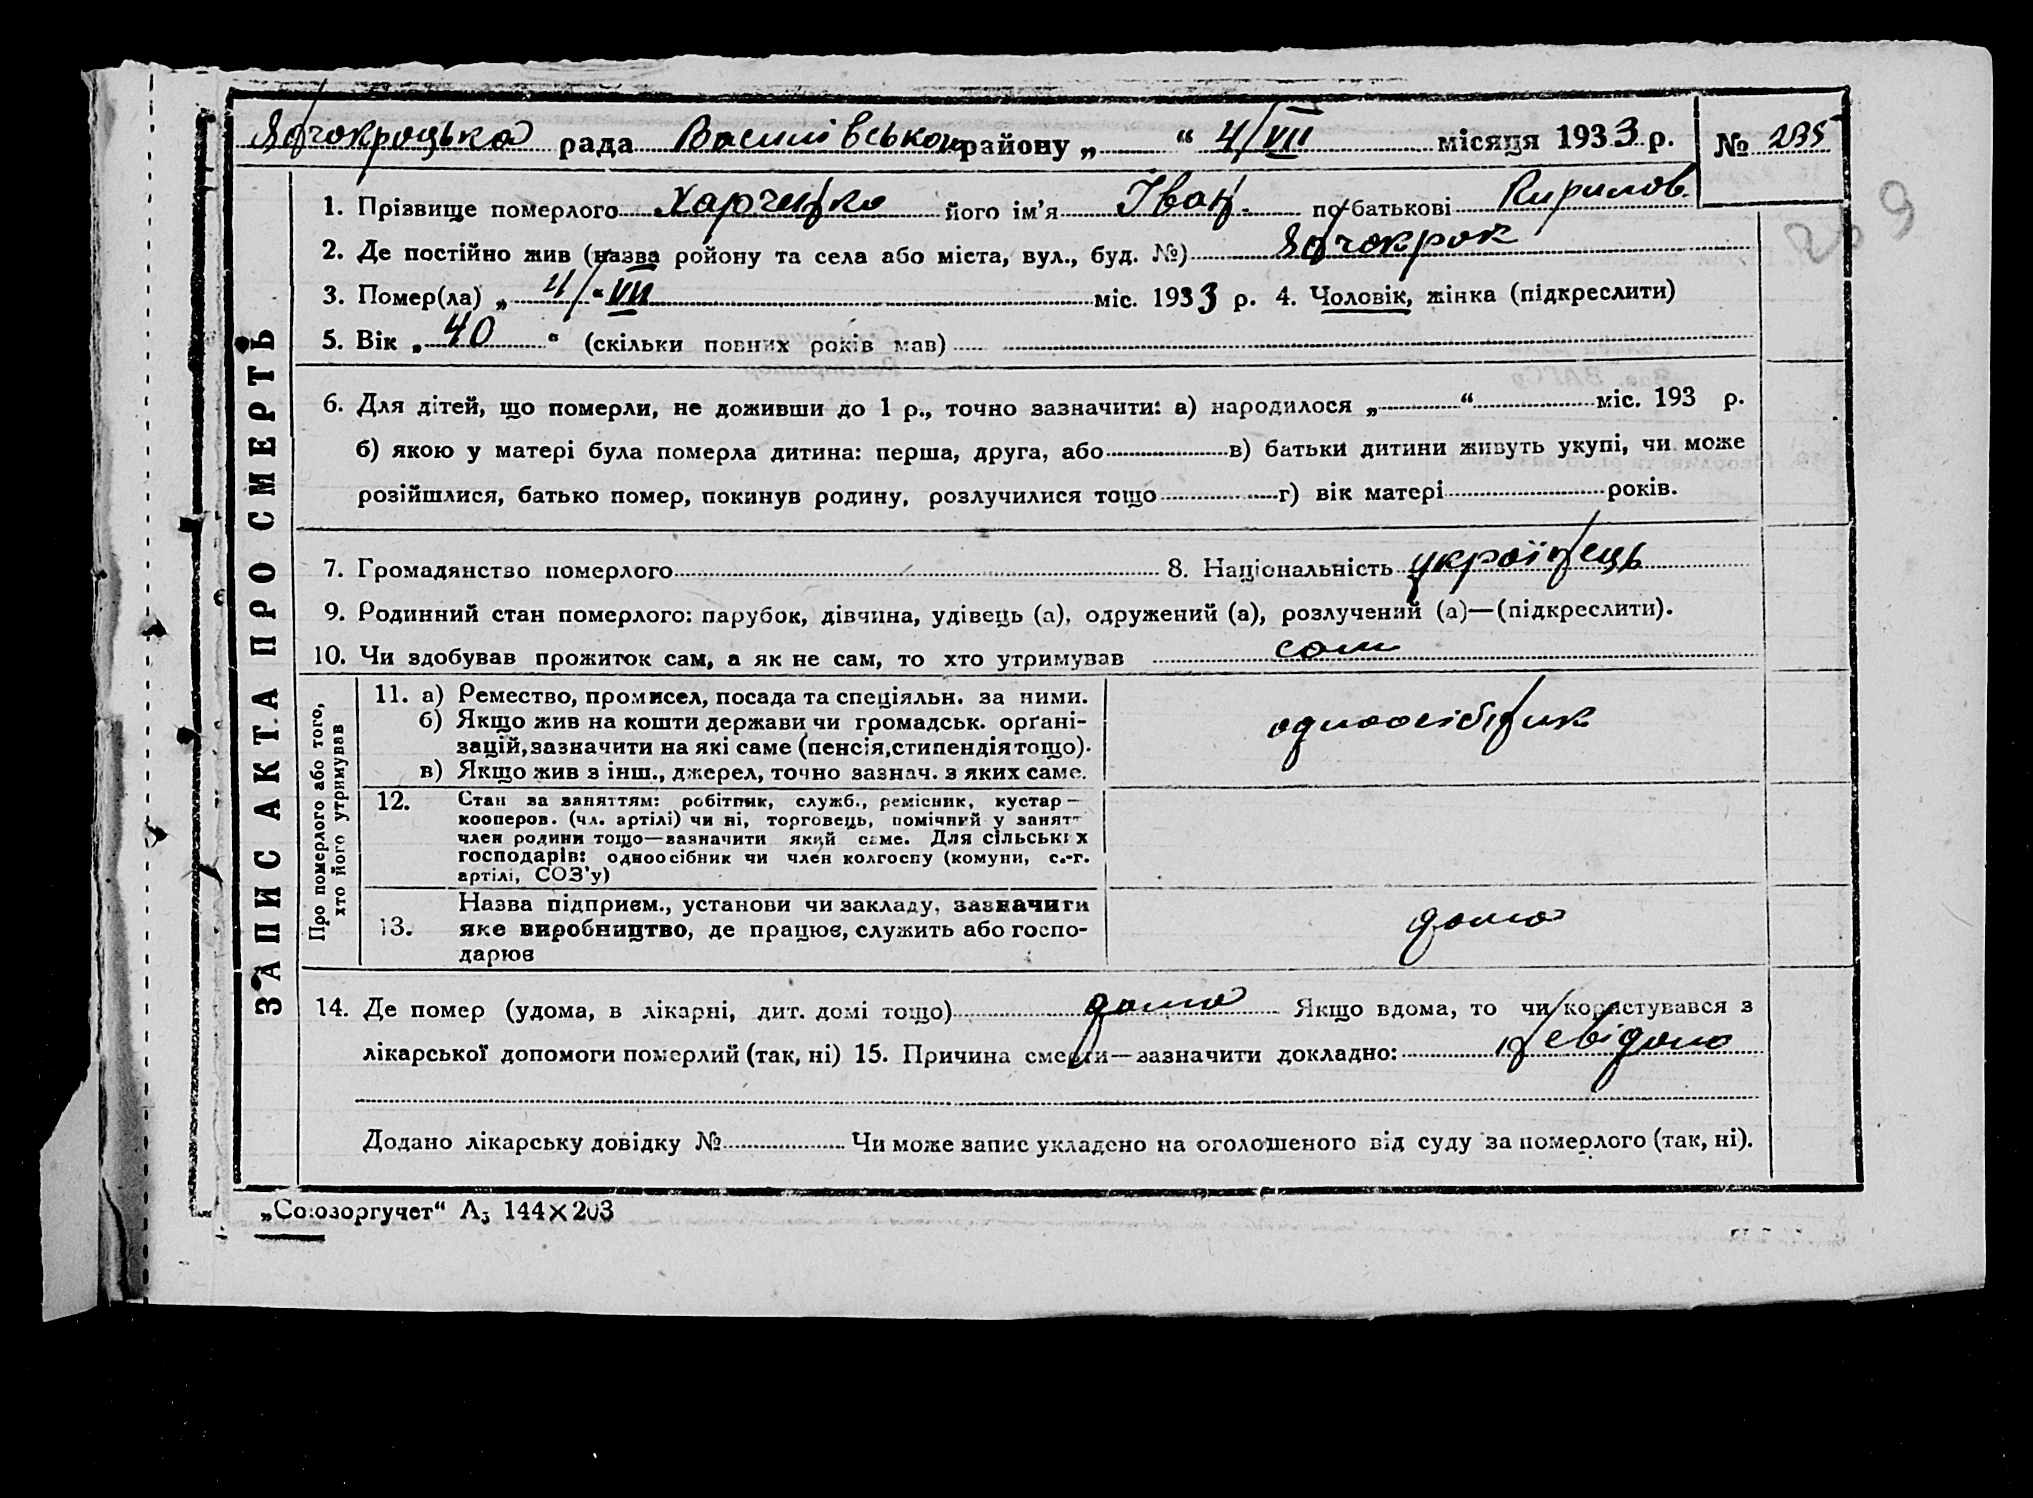 Янчокрацька рада Василівського району „ “ 4/VII місяця 1933 р. № 235
209
ЗАПИС АКТА ПРО СМЕРТЬ
1. Прізвище померлого Харченко його ім’я Іван по батькові Кирилов.
2. Де постійно жив (назва ройону та села або міста, вул., буд. №) Янчокрак
3. Помер(ла) „ 4/“ VII міс. 1933 р. 4. Чоловік, жінка (підкреслити)
5. Вік „ 40 “ (скільки повних років мав)
6. Для дітей, що померли, не доживши до 1 р., точно зазначити: а) народилося „ “ міс. 193 р.
б) якою у матері була померла дитина: перша, друга, або в) батьки дитини живуть укупі, чи може
розійшлися, батько помер, покинув родину, розлучилися тощо г) вік матері років.
7. Громадянство померлого 8. Національність українець
9. Родинний стан померлого: парубок, дівчина, удівець (а), одружений (а), розлучений (а)—(підкреслити).
10. Чи здобував прожиток сам, а як не сам, то хто утримував сам
Про померлого або того,
хто його утримував
11. а) Ремество, промисел, посада та спеціяльн. за ними.
б) Якщо жив на кошти держави чи громадськ. орґані-
зацій, зазначити на які саме (пенсія, стипендія тощо).
в) Якщо жив з інш., джерел, точно зазнач. з яких саме.
одноосібник
12. Стан за заняттям: робітник, служб., ремісник, кустар —
кооперов. (чл. артілі) чи ні, торговець, помічний у занятт
член родини тощо—зазначити який саме. Для сільських
господарів: одноосібник чи член колгоспу (комуни, с.-г.
артілі, СОЗ’у)
Назва підприєм., установи чи закладу, зазначити
13. яке виробництво, де працює, служить або госпо-
дарює
дома
14. Де помер (удома, в лікарні, дит. домі тощо) дома Якщо вдома, то чи користувався з
лікарської допомоги померлий (так, ні) 15. Причина смерти—зазначити докладно: невідомо
Додано лікарську довідку № Чи може запис укладено на оголошеного від суду за померлого (так, ні).
„Союзоргучет“ А5 144×203